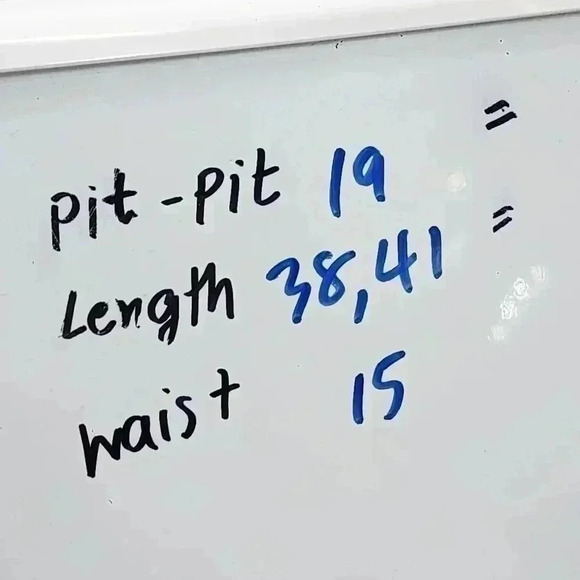 pit-pit 19 =
Length 38,41 =
waist 15